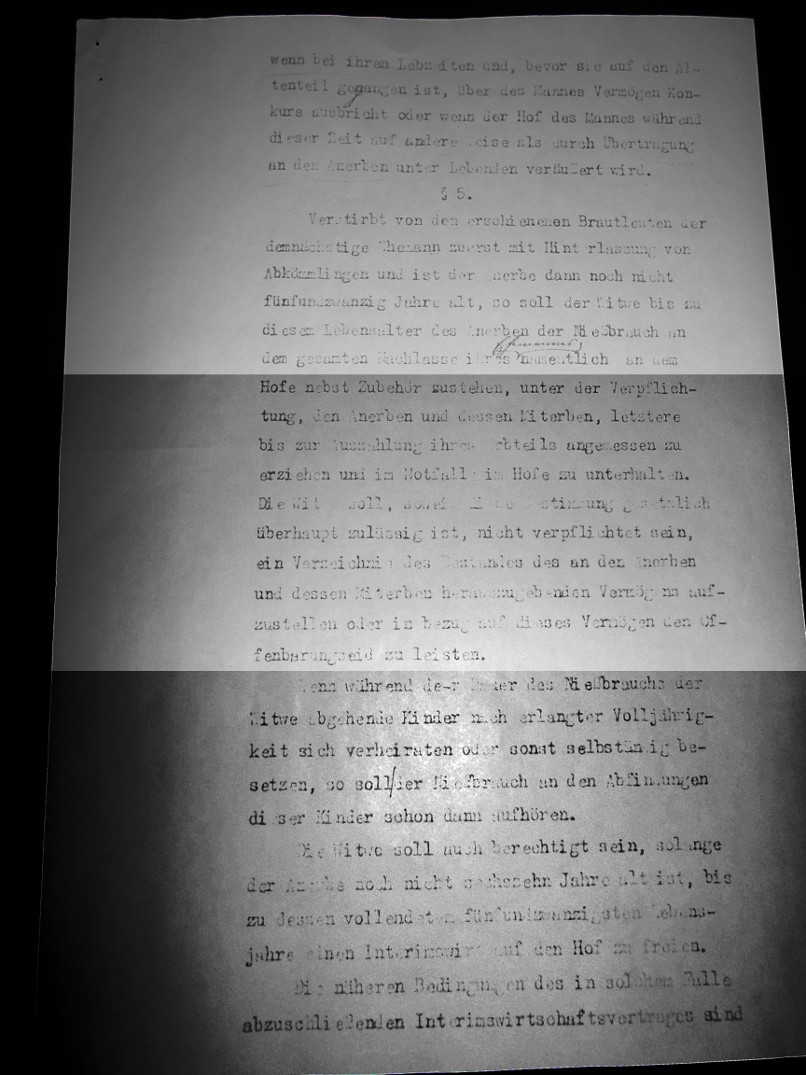 wenn bei ihren Lebzeiten und, bevor sie auf den Al-
tenteil gegangen ist, über des Mannes Vermögen Kon-
kurs ausbricht oder wenn der Hof des Mannes während
dieser Zeit auf andere Weise als durch Übertragung
an den Anerben unter Lebenden veräußert wird.
§ 5.
Verstirbt von den erschienenen Brautleuten der
demnächstige Ehemann zuerst mit Hinterlassung von
Abkömmlingen und ist der Anerbe dann noch nicht
fünfundzwanzig Jahre alt, so soll der Witwe bis zu
diesem Lebensalter des Anerben der Nießbrauch an
Ehemannes,
dem gesamten Nachlasse ihres namentlich an dem
Hofe nebst Zubehör zustehen, unter der Verpflich-
tung, den Anerben und dessen Miterben, letztere
bis zur Auszahlung ihres Erbteils angemessen zu
erziehen und im Notfalle im Hofe zu unterhalten.
Die Witwe soll, soweit diese Bestimmung gesetzlich
überhaupt zulässig ist, nicht verpflichtet sein,
ein Verzeichnis des Bestandes des an den Anerben
und dessen Miterben herauszugebenden Vermögens auf-
zustellen oder in bezug auf dieses Vermögen den Of-
fenbarungseid zu leisten.
Wenn während der Dauer des Nießbrauchs der
Witwe abgehende Kinder nach erlangter Volljährig-
keit sich verheiraten oder sonst selbständig be-
setzen, so soll der Nießbrauch an den Abfindungen
dieser Kinder schon dann aufhören.
Die Witwe soll auch berechtigt sein, solange
der Anerbe noch nicht sechszehn Jahre alt ist, bis
zu dessen vollendeten fünfundzwanzigsten Lebens-
jahre einen Interimswirt auf den Hof zu freien.
Die näheren Bedingungen des in solchem Falle
abzuschließenden Interimswirtschaftsvertrages sind